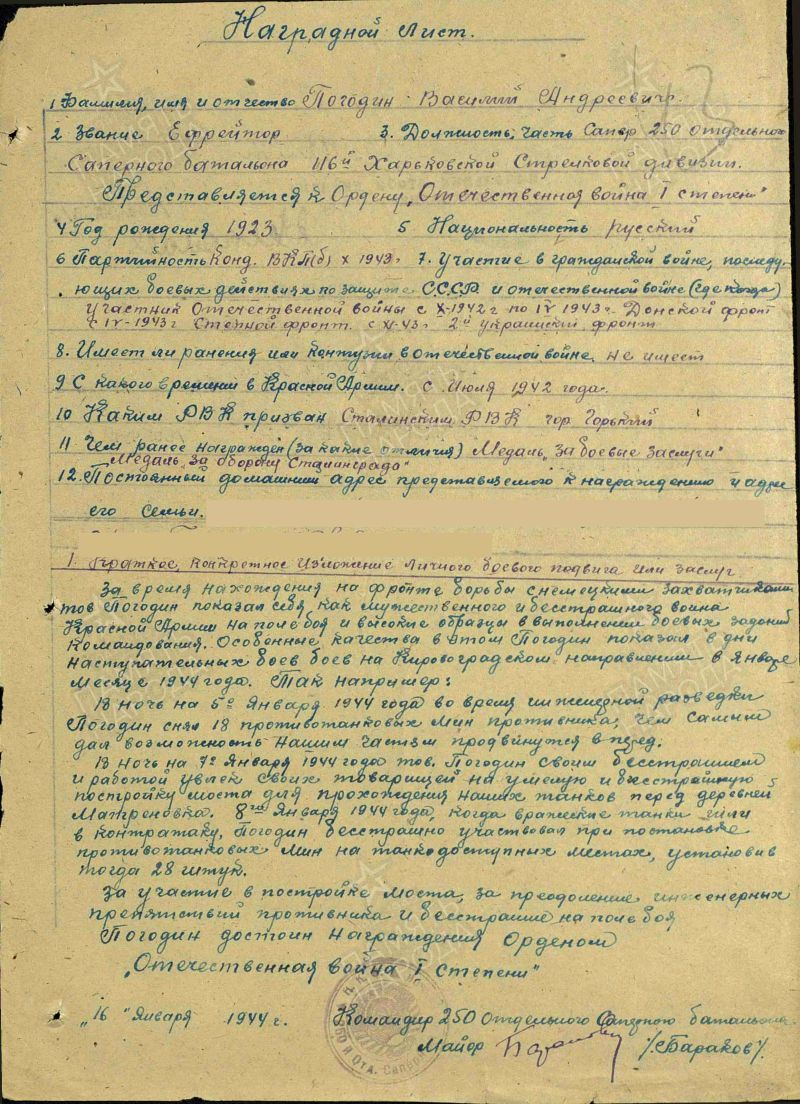 Наградной Лист.
1 Фамилия, имя и отчество Погодин Василий Андреевич.
2 Звание Ефрейтор 3. Должность, часть Сапер 250 отдельного
Саперного батальона 116й Харьковской Стрелковой дивизии.
Представляется к Ордену „Отечественная война I степени"
4 Год рождения 1923 5 Национальность русский
6 Партийность Конд. ВКП(б) X 1943г. 7. Участие в гражданской войне, последу-
ющих боевых действиях по защите СССР и отечественной войне (где когда)
Участник Отечественной войны с X-1942г по IV 1943г. Донской фронт
с IV-1943г Степной фронт. с X-43г. 2й украинский фронт
8. Имеет ли ранения или контузии в отечественной войне не имеет
9 С какого времени в Красной Армии. с Июля 1942 года.
10 Каким РВК призван Сталинским РВК гор. Горький
11 Чем ранее награжден (за какие отличия) Медаль „За боевые заслуги"
Медаль „За оборону Сталинграда"
12. Постоянный домашний адрес представляемого к награждению и адрес
его семьи.
1. Краткое, конкретное изложение личного боевого подвига или заслуг
За время нахождения на фронте борьбы с немецкими захватчиками
тов Погодин показал себя, как мужественного и бесстрашного воина
Красной Армии на поле боя и высокие образцы в выполнении боевых заданий
командования. Особенные качества в этом Погодин показал в дни
наступательных боев боев на Кировоградском направлении в Январе
месяце 1944 года. Так например:
В ночь на 5е Января 1944 года во время инженерной разведки
Погодин снял 18 противотанковых мин противника, чем самым
дал возможность нашим частям продвинутся вперед.
В ночь на 7е Января 1944 года тов. Погодин своим бесстрашием
и работой увлек своих товарищей на умелую и бесстрашную
постройку моста для прохождения наших танков перед деревней
Матреновка. 8го Января 1944 года, когда вражеские танки шли
в контратаку, Погодин бесстрашно участвовал при постановке
противотанковых мин на танкодоступных местах, установив
тогда 28 штук.
За участие в постройке моста, за преодоление инженерных
препятствий противника и бесстрашие на поле боя
Погодин достоин награждения Орденом
„Отечественная война I степени"
„16" Января 1944 г. Командир 250 Отдельного Саперного батальона
Майор /Бараков/.